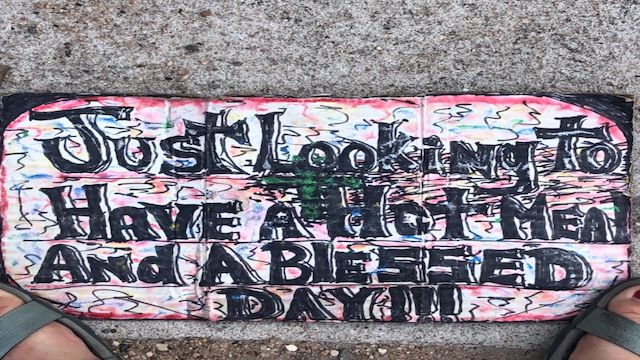 Just Looking To
HAVE A Hot MEA
And A BlESSED
DAY!!!